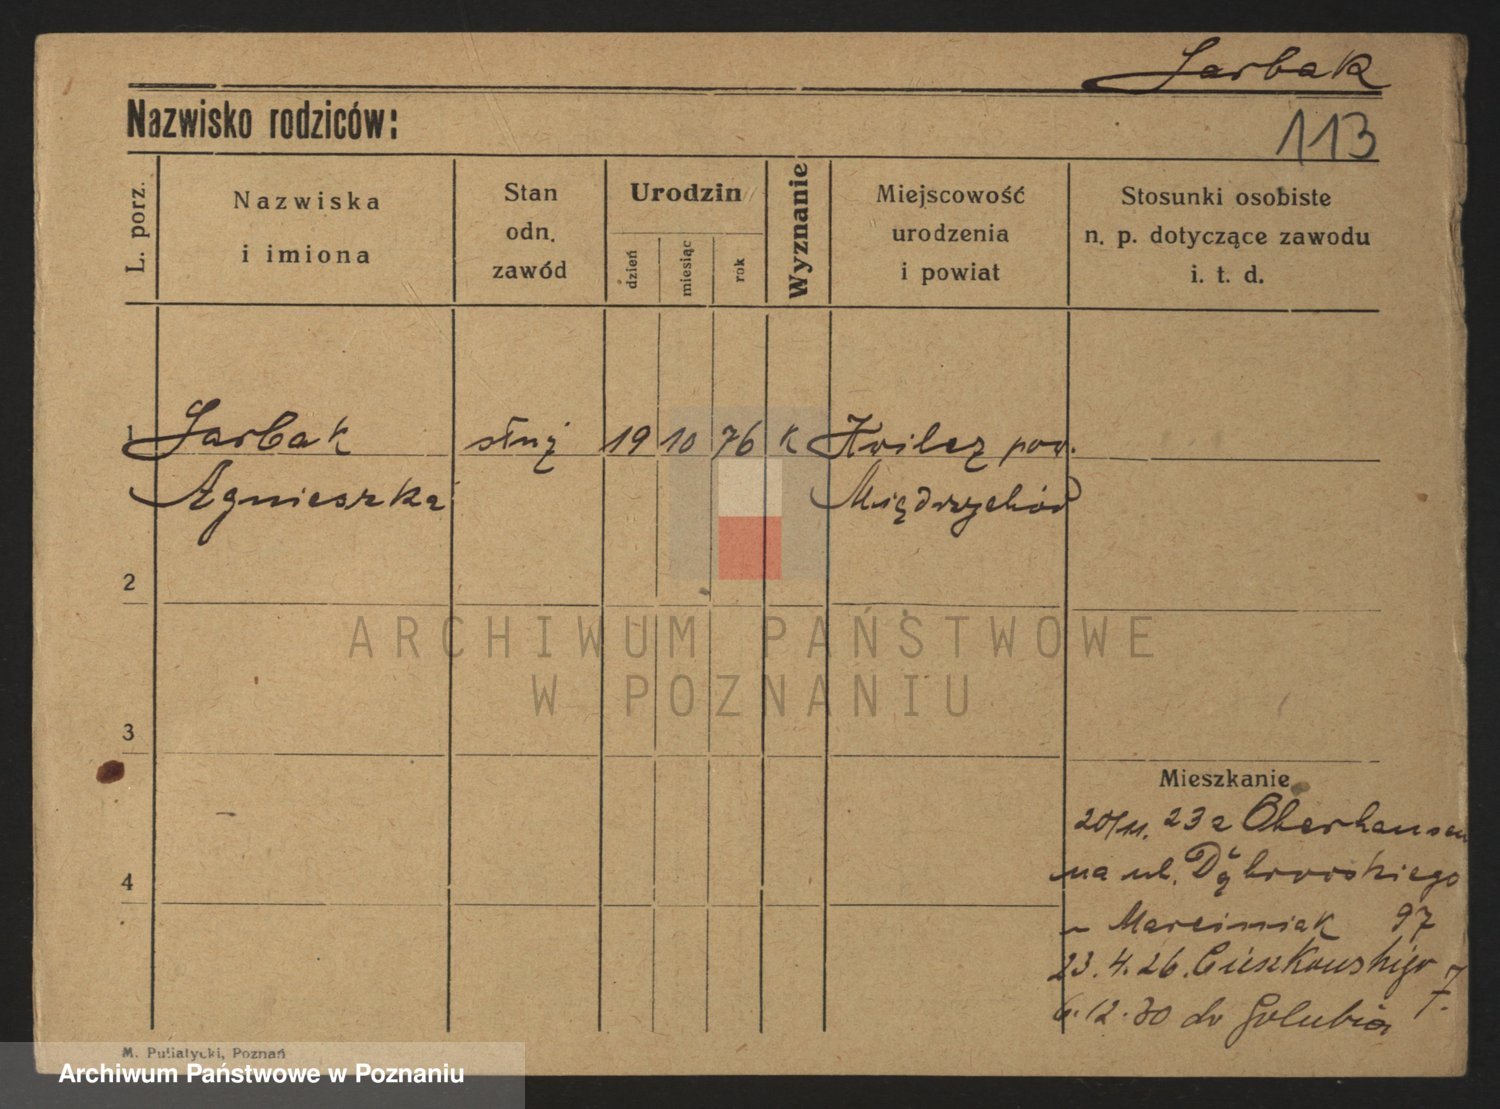 Sarbak
Nazwisko rodziców:
113
L. porz.
Nazwiska
i imiona
Stan
odn.
zawód
Urodzin
dzień
miesiąc
rok
Wyznanie
Miejscowość
urodzenia
i powiat
Stosunki osobiste
n. p. dotyczące zawodu
i. t. d.
1
Sarbak służ 19 10 76 k Kwilcz pow.
Agnieszka Międrzychód
2
3
4
Mieszkanie
20/11. 23 z Oberhausen
na ul. Dąbrowskiego
u Marciniak 97
23.4.26. Cieszkowskiego 7.
6.12.30 do Golubia
M. Pullatycki, Poznań
ARCHIWUM PAŃSTWOWE
W POZNANIU
Archiwum Państwowe w Poznaniu